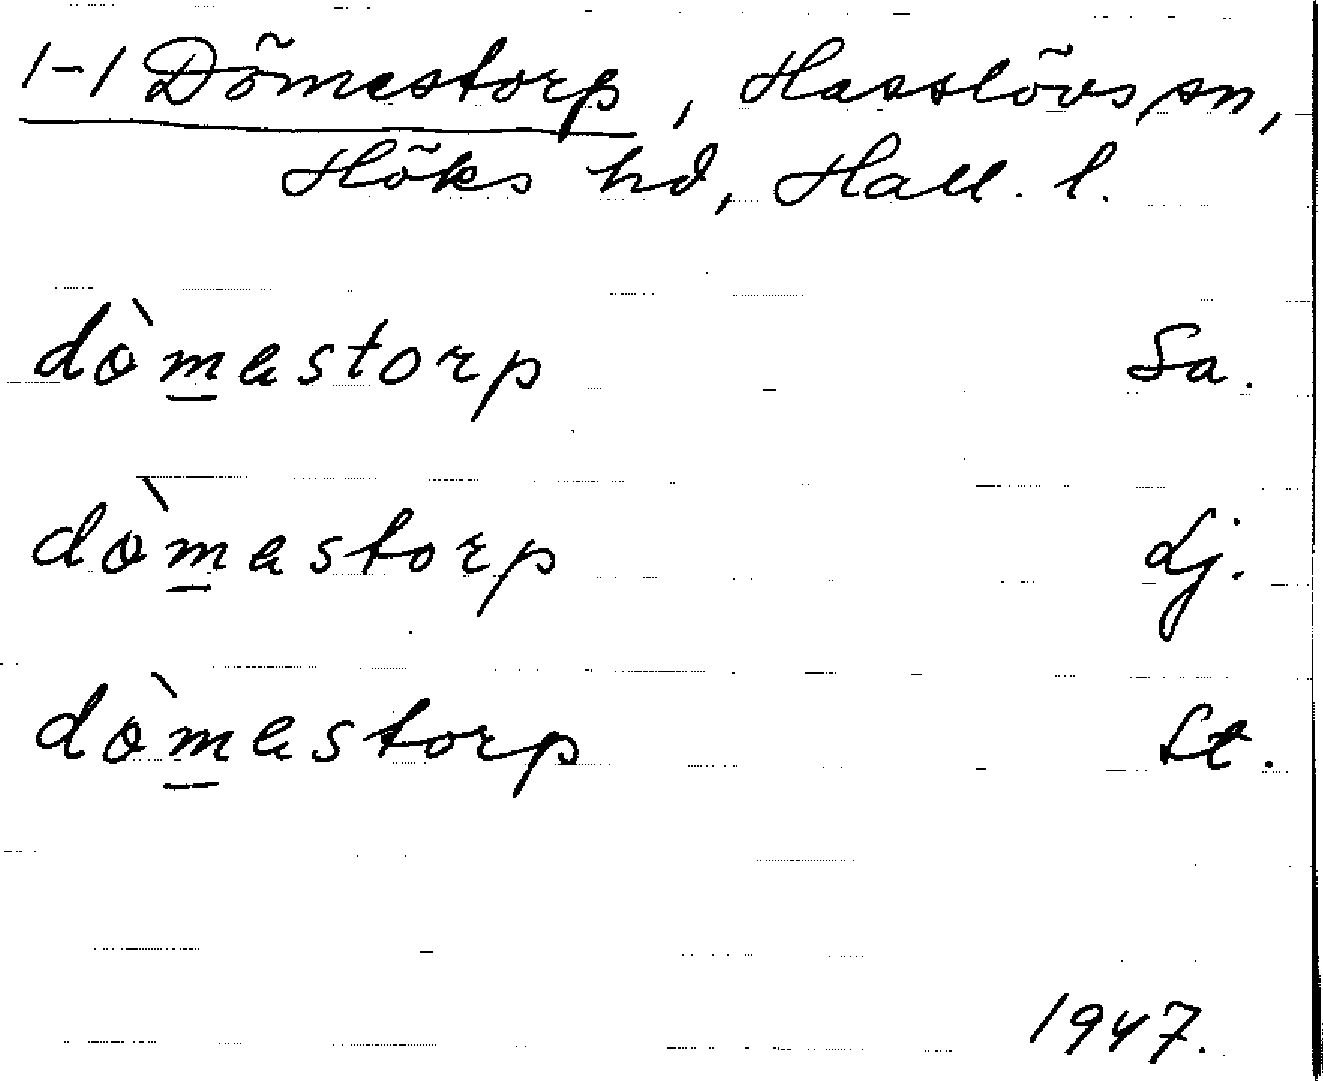 1-1 Dömestorp, Hasslövs sn,
Höks hd, Hall. l.
dò̱mestorp Sa.
dò̱mestorp Lj.
dò̱mestorp St.
1947.